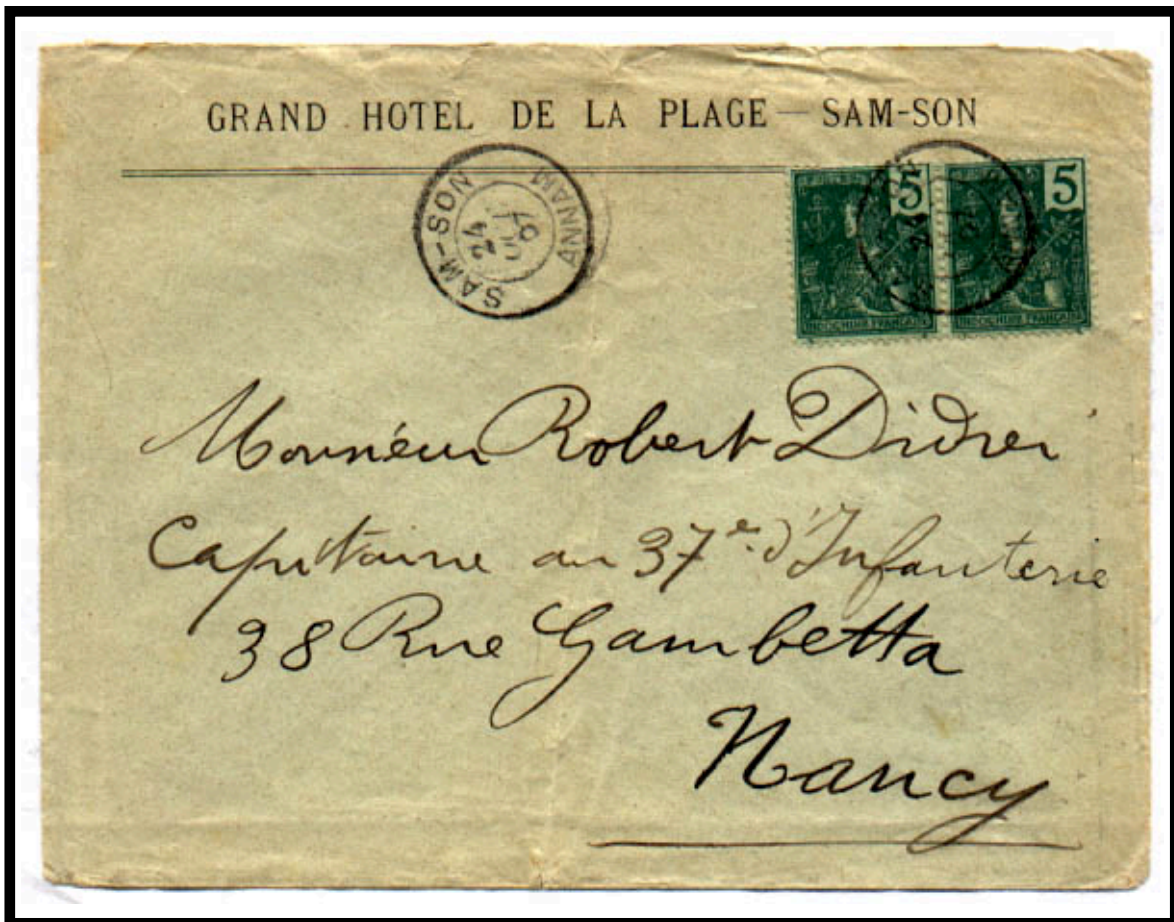 GRAND HOTEL DE LA PLAGE — SAM-SON
SAM-SON
24
07
ANNAM
5
5
INDOCHINE FRANÇAISE
INDOCHINE FRANÇAISE
24
ANNAM
Monsieur Robert Didier
Capitaine au 37e d'Infanterie
38 Rue Gambetta
Nancy